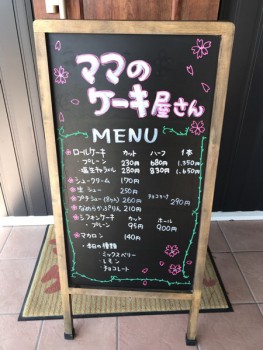 ママの
ケーキ屋さん
MENU
ロールケーキ カット ハーフ 1本
プレーン 230円 680円 1,350円
塩生キャラメル 280円 830円 1,650円
シュークリーム 170円
生シュー 250円
プチシュー(8ヶ入) 260円 290円
なめらかぷりん 210円
シフォンケーキ カット ホール
・プレーン 95円 900円
マカロン 140円
・今日の種類
・ミックスベリー
・レモン
・チョコレート